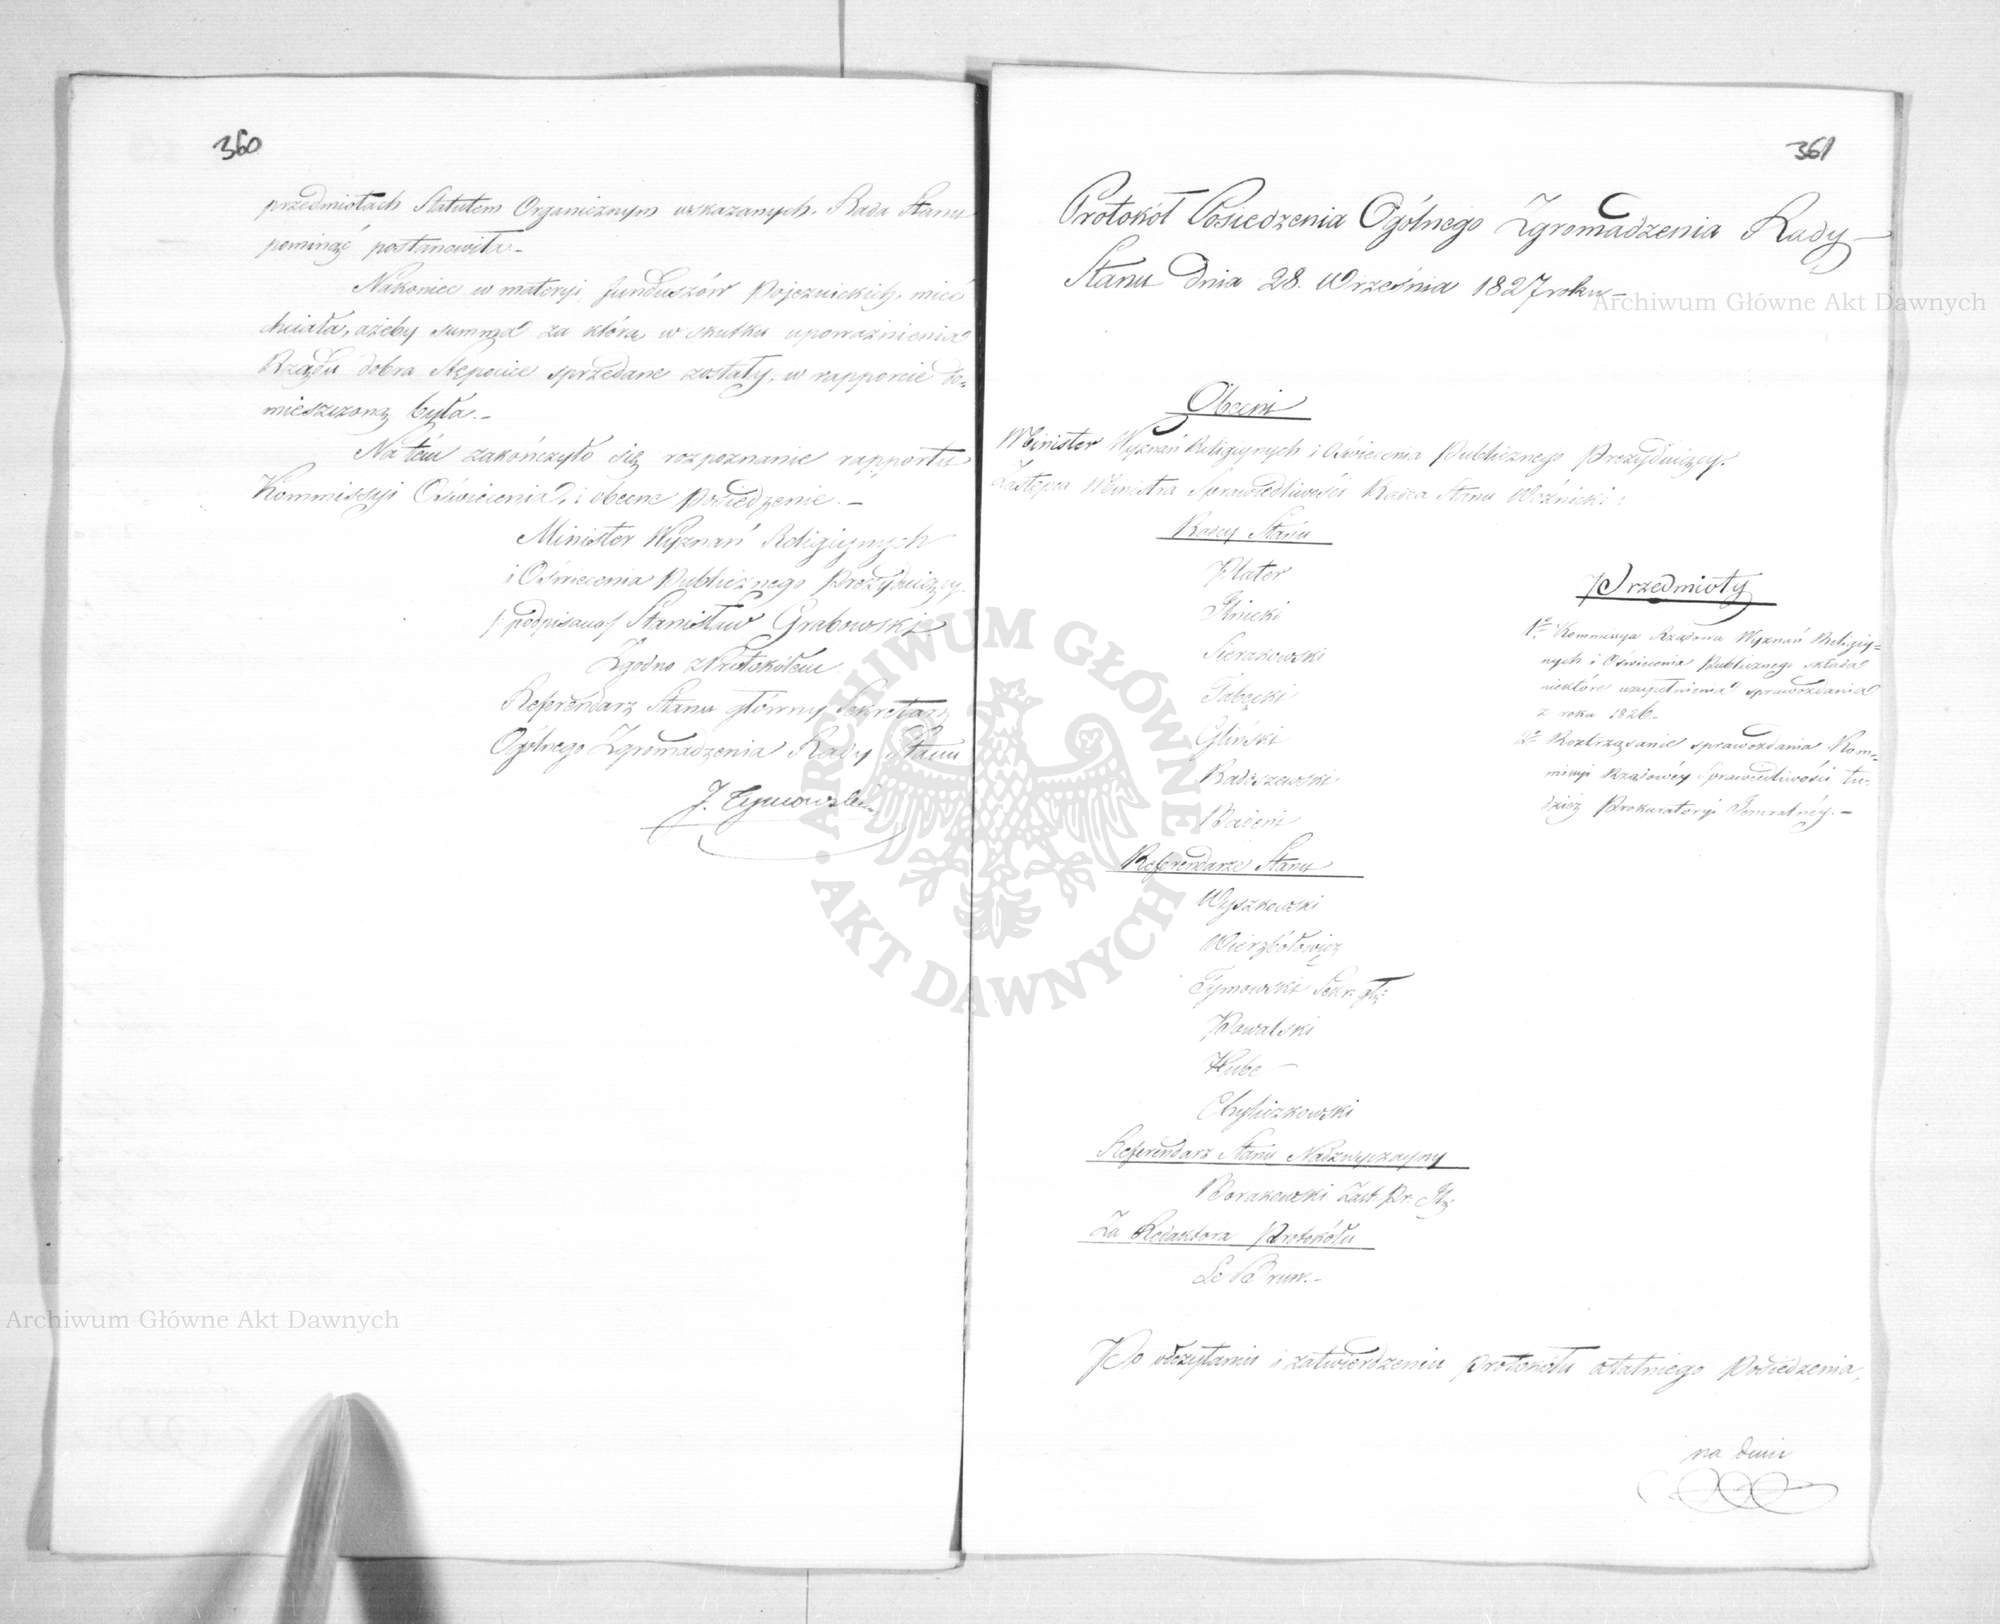 360
przedmiotach Statutem Organicznym wskazanych, Rada Stanu
pominąć postanowiła.-
Nakoniec w materyi funduszów Pojezuickich, mieć
chciała, ażeby summa za którą w skutku upoważnienia
Rządu dobra sprzedane zostały, w rapporcie do=
mieszczoną była.-
Na tém zakończyło się rozpoznanie rapportu
Kommissyi Oświecenia, i obecne Posiedzenie.-
Minister Wyznań Religijnych
i Oświecenia Publicznego Prezydujący
/:podpisano:/ Stanisław Grabowski.
Zgodno z Protokółem
Referendarz Stanu główny Sekretarz
Ogólnego Zgromadzenia Rady Stanu
J. Tymowski
361
Protokół Posiedzenia Ogólnego Zgromadzenia Rady
Stanu dnia 28. Września 1827 roku.-
Obecni
Minister Wyznań Religijnych i Oświecenia Publicznego Prezydujący.
Zastępca Ministra Sprawiedliwości Radca Stanu Woźnicki:
Radcy Stanu
Plater
Sierakowski
Gliński
Radoszewski
Badeni
Referendarze Stanu
Wyszkowski
Wierzbołowicz
Tymowski Sekr: gł:
Kowalski
Hube -
Chyliczkowski
Referendarz Stanu Nadzwyczayny
Borakowski Zast. Pr. Jl:
Za Redaktora Protokółu
Le Brun.-
Przedmioty
1e Kommissya Rządowa Wyznań Religiy=
nych i Oświecenia Publicznego składa
niektóre uzupełnienia sprawozdania
z roku 1826.-
2e Roztrząsanie sprawozdania Kom=
missyi Rządowéy Sprawiedliwości tu=
dzież Prokuratoryi Jeneralnéy.-
Po odczytaniu i zatwierdzeniu protokółu ostatniego Posiedzenia,
na dniu
Archiwum Główne Akt Dawnych
Archiwum Główne Akt Dawnych
ARCHIWUM GŁÓWNE
AKT DAWNYCH